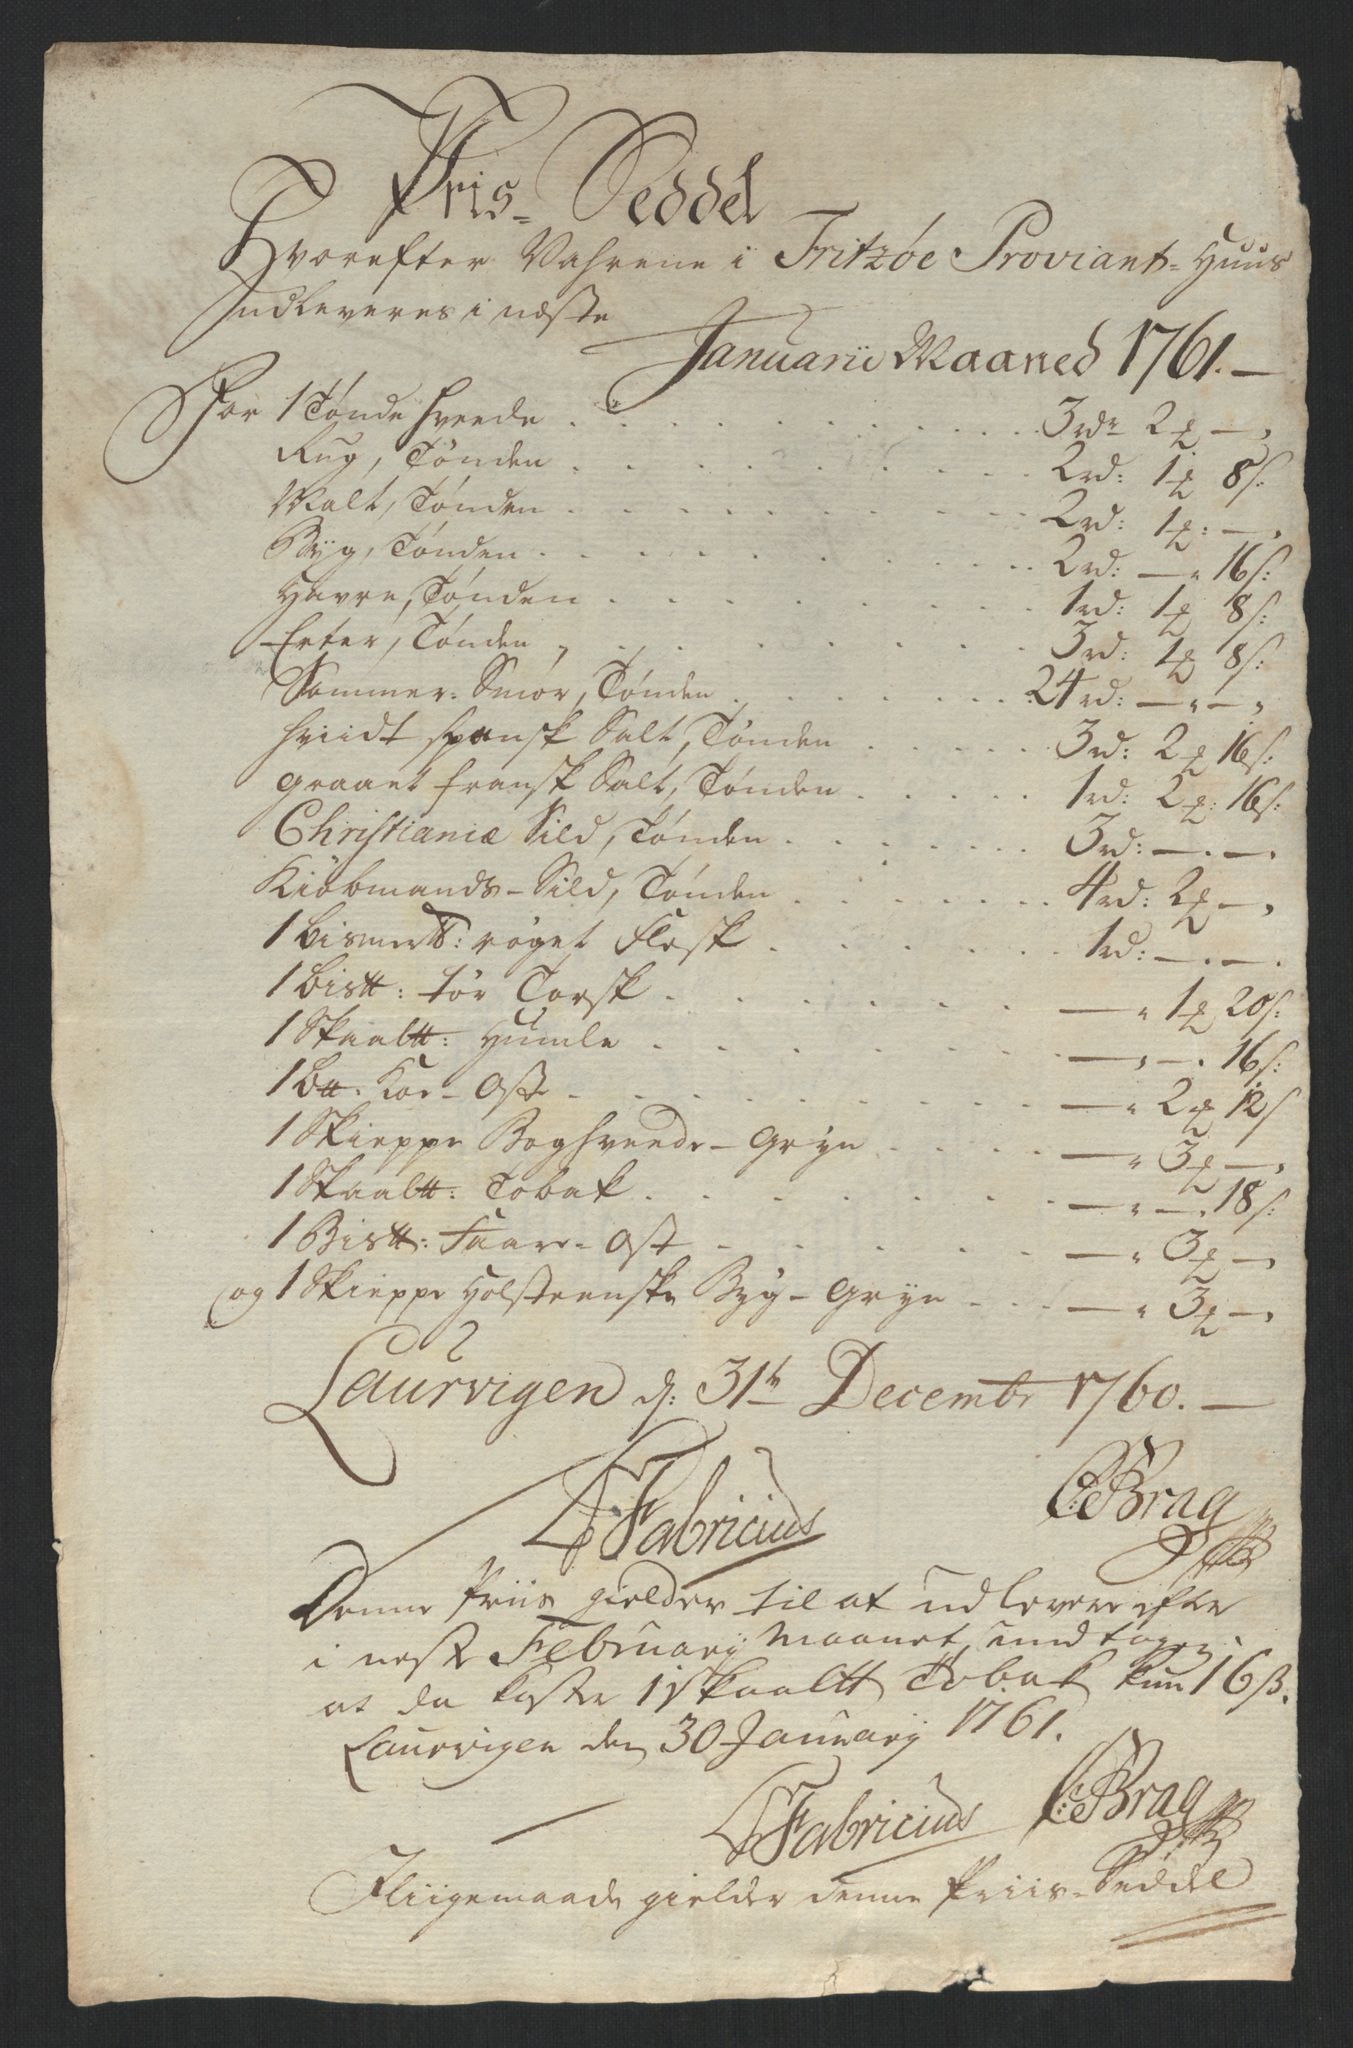 Pris- Seddel
Hvorefter Vahrene i Fritzøe Proviant-Huus
Indleveres i næste
Januarii Maaned 1761.—
For 1 Tønde Hvede . . . 3 rdr 2 ₰ —.
Rug, Tønden . . . 2 rd: 1 ₰ 8 s:
Malt, Tønden . . . 2 rd: 1 ₰: —.
Byg, Tønden . . . 2 rd: —. 16 s:
Havre, Tønden . . . 1 rd: 1 ₰ 8 s:
Erter, Tønden . . . 3 rd: 1 ₰ 8 s:
Sommer-Smör, Tønden . . . 24 rd: —.—.
Hviidt spansk Salt, Tønden . . . 3 rd: 2 ₰ 16 s:
graaet fransk Salt, Tønden . . . 1 rd: 2 ₰: 16 s:
Christianiæ Sild, Tønden . . . 3 rd: —.—.
Kiöbmands-Sild, Tønden . . . 4 rd: 2 ₰ —.
1 Bismert℔: röget Flesk . . . 1 rd: —.—.
1 Bis℔: tör Torsk . . . —. 1 ₰ 20 s:
1 Skaal℔: Humle . . . —.—. 16 s:
1 B℔: Koe-Ost . . . —. 2 ₰ 12 s
1 Skieppe Boghvede-Gryn . . . —. 3 ₰ —.
1 Skaal℔: Tobak . . . —.—. 18 s:
1 Bis℔: Faare-Ost . . . —. 3 ₰ —.
og 1 Skieppe Holsteenske Byg-Gryn . . . —. 3 ₰ —.
Laurvigen d: 31te Decembr 1760.—
Fabricius CBrag
Denne Priis gielder til at udlevere efter
i neste February Maanet, undtagen
at da koste 1 Skaal℔ Tobak kun 16 ß.
Laurvigen den 30 January 1761.
Fabricius CBrag
Iliigemaade gielder denne Priis-Seddel